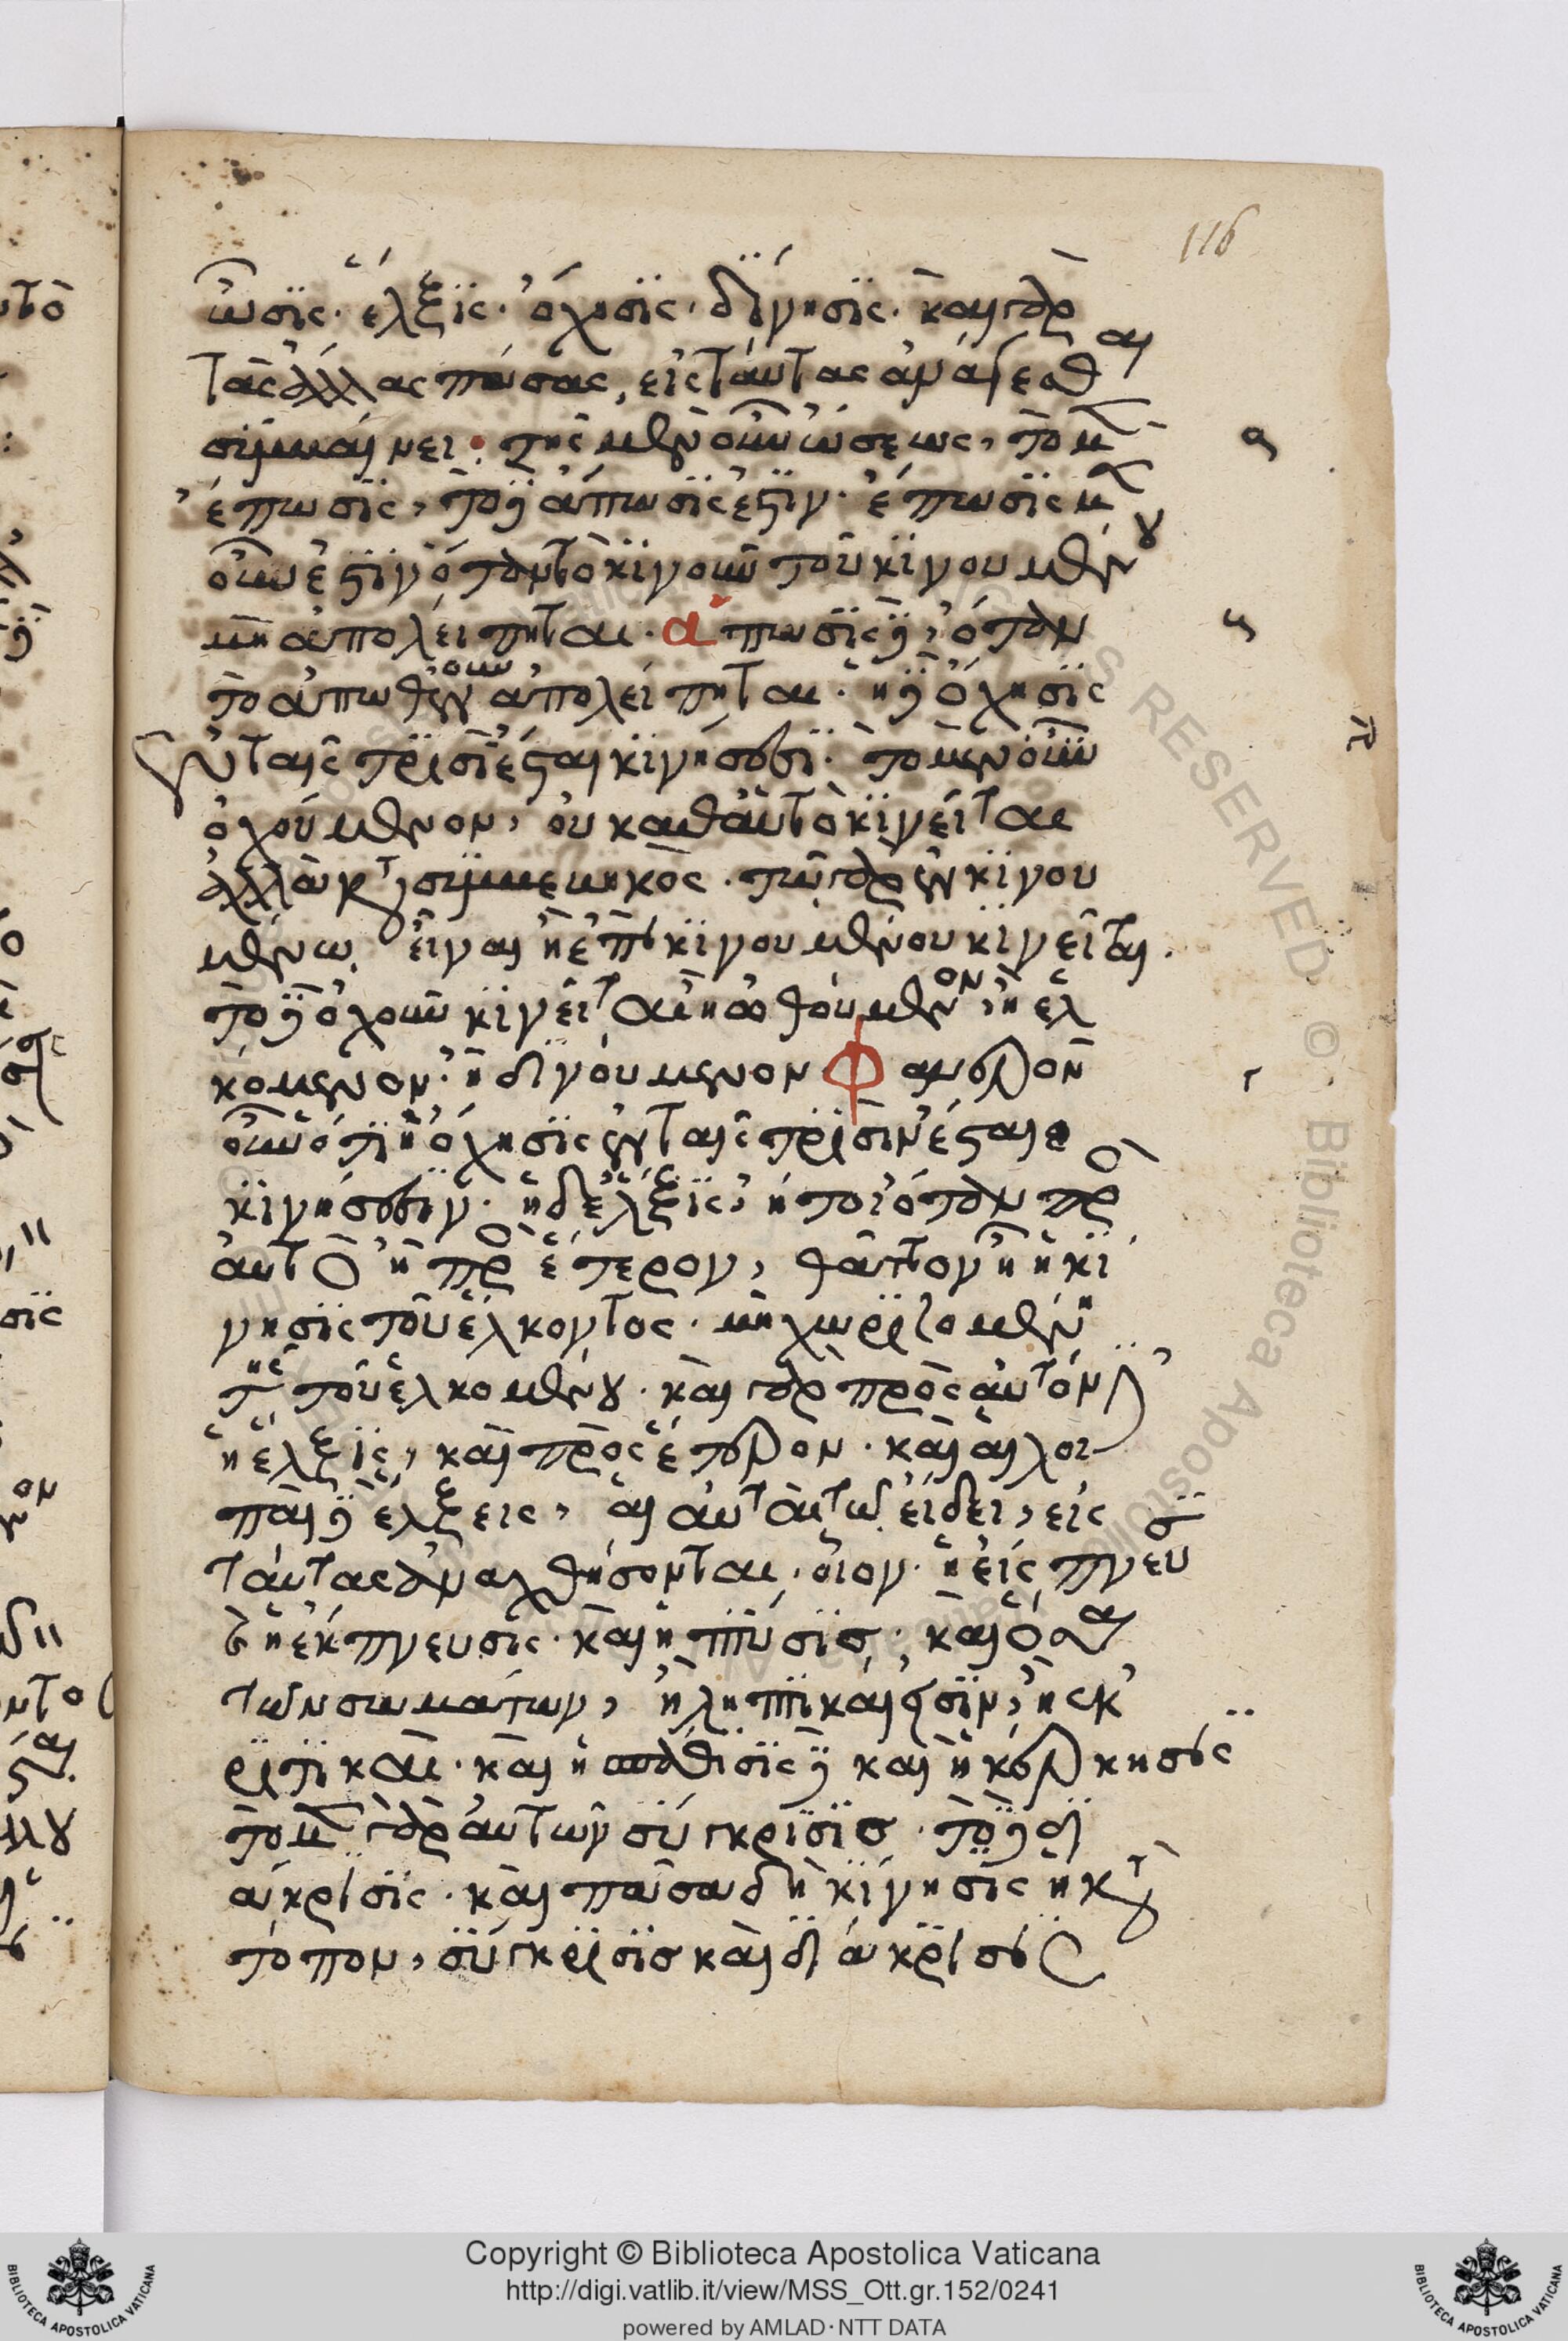 116
ὦσις· ἕλξις· ὄχησις· δίνησις· καὶ γὰρ
τὰς ἄλλας πάσας, εἰς ταύτας ἀνάγεσθαι
συμβαίνει· τῆς μὲν οὖν ὤσεως, τὸ μὲν
ἔπωσις, τὸ δὲ ἄπωσις ἐστιν· ἔπωσις μὲν
οὖν ἐστιν ὅταν τὸ κινοῦν τοῦ κινουμένου
μὴ ἀπολείπηται· ἄπωσις δὲ, ὅταν
τὸ ἀπωθοῦν ἀπολείπηται· ἡ δὲ ὄχησις
ἐν ταῖς τρισὶ ἔσται κινήσεσι· τὸ μὲν οὖν
ὀχούμενον, οὐ καθ' αὑτὸ κινεῖται
ἀλλὰ κατὰ συμβεβηκός· τῷ γὰρ ἐν κινου
μένῳ εἶναι ἢ ἐπὶ κινουμένου κινεῖται.
τὸ δὲ ὀχοῦν κινεῖται ἢ ὠθούμενον, ἢ ἑλ
κόμενον· ἢ δινούμενον φανερὸν
οὖν ὅτι ἡ ὄχησις ἐν ταῖς τρισὶν ἔσται
κινήσεσιν· ἡ δὲ ἕλξις, ἤτοι ὅταν πρὸς
αὐτὸ ἢ πρὸς ἕτερον, θᾶττον ἢ ἡ κί
νησις τοῦ ἕλκοντος· μὴ χωριζομένη
τῆς τοῦ ἑλκομένου· καὶ γὰρ πρὸς αὐτό ἐστιν
ἡ ἕλξις, καὶ πρὸς ἕτερον· καὶ αἱ λοι
παὶ δὲ ἕλξεις, αἱ αὐταὶ τῷ εἴδει, εἰς
ταύτας ἀναχθήσονται· οἷον· ἡ εἴσπνευ
σις ἡ ἔκπνευσις· καὶ ἡ πτύσις· καὶ ὅσαι
τῶν σωμάτων, ἢ ληπτικαί εἰσιν, ἢ ἐκ
κριτικαὶ· καὶ ἡ σπάθισις δὲ καὶ ἡ κέρκησις
τὸ μὲν γὰρ αὐτῶν σύγκρισις· τὸ δὲ δι
άκρισις· καὶ πᾶσα δὴ κίνησις ἡ κατὰ
τόπον, σύγκρισις καὶ διάκρισις
Copyright © Biblioteca Apostolica Vaticana
http://digi.vatlib.it/view/MSS_Ott.gr.152/0241
powered by AMLAD · NTT DATA